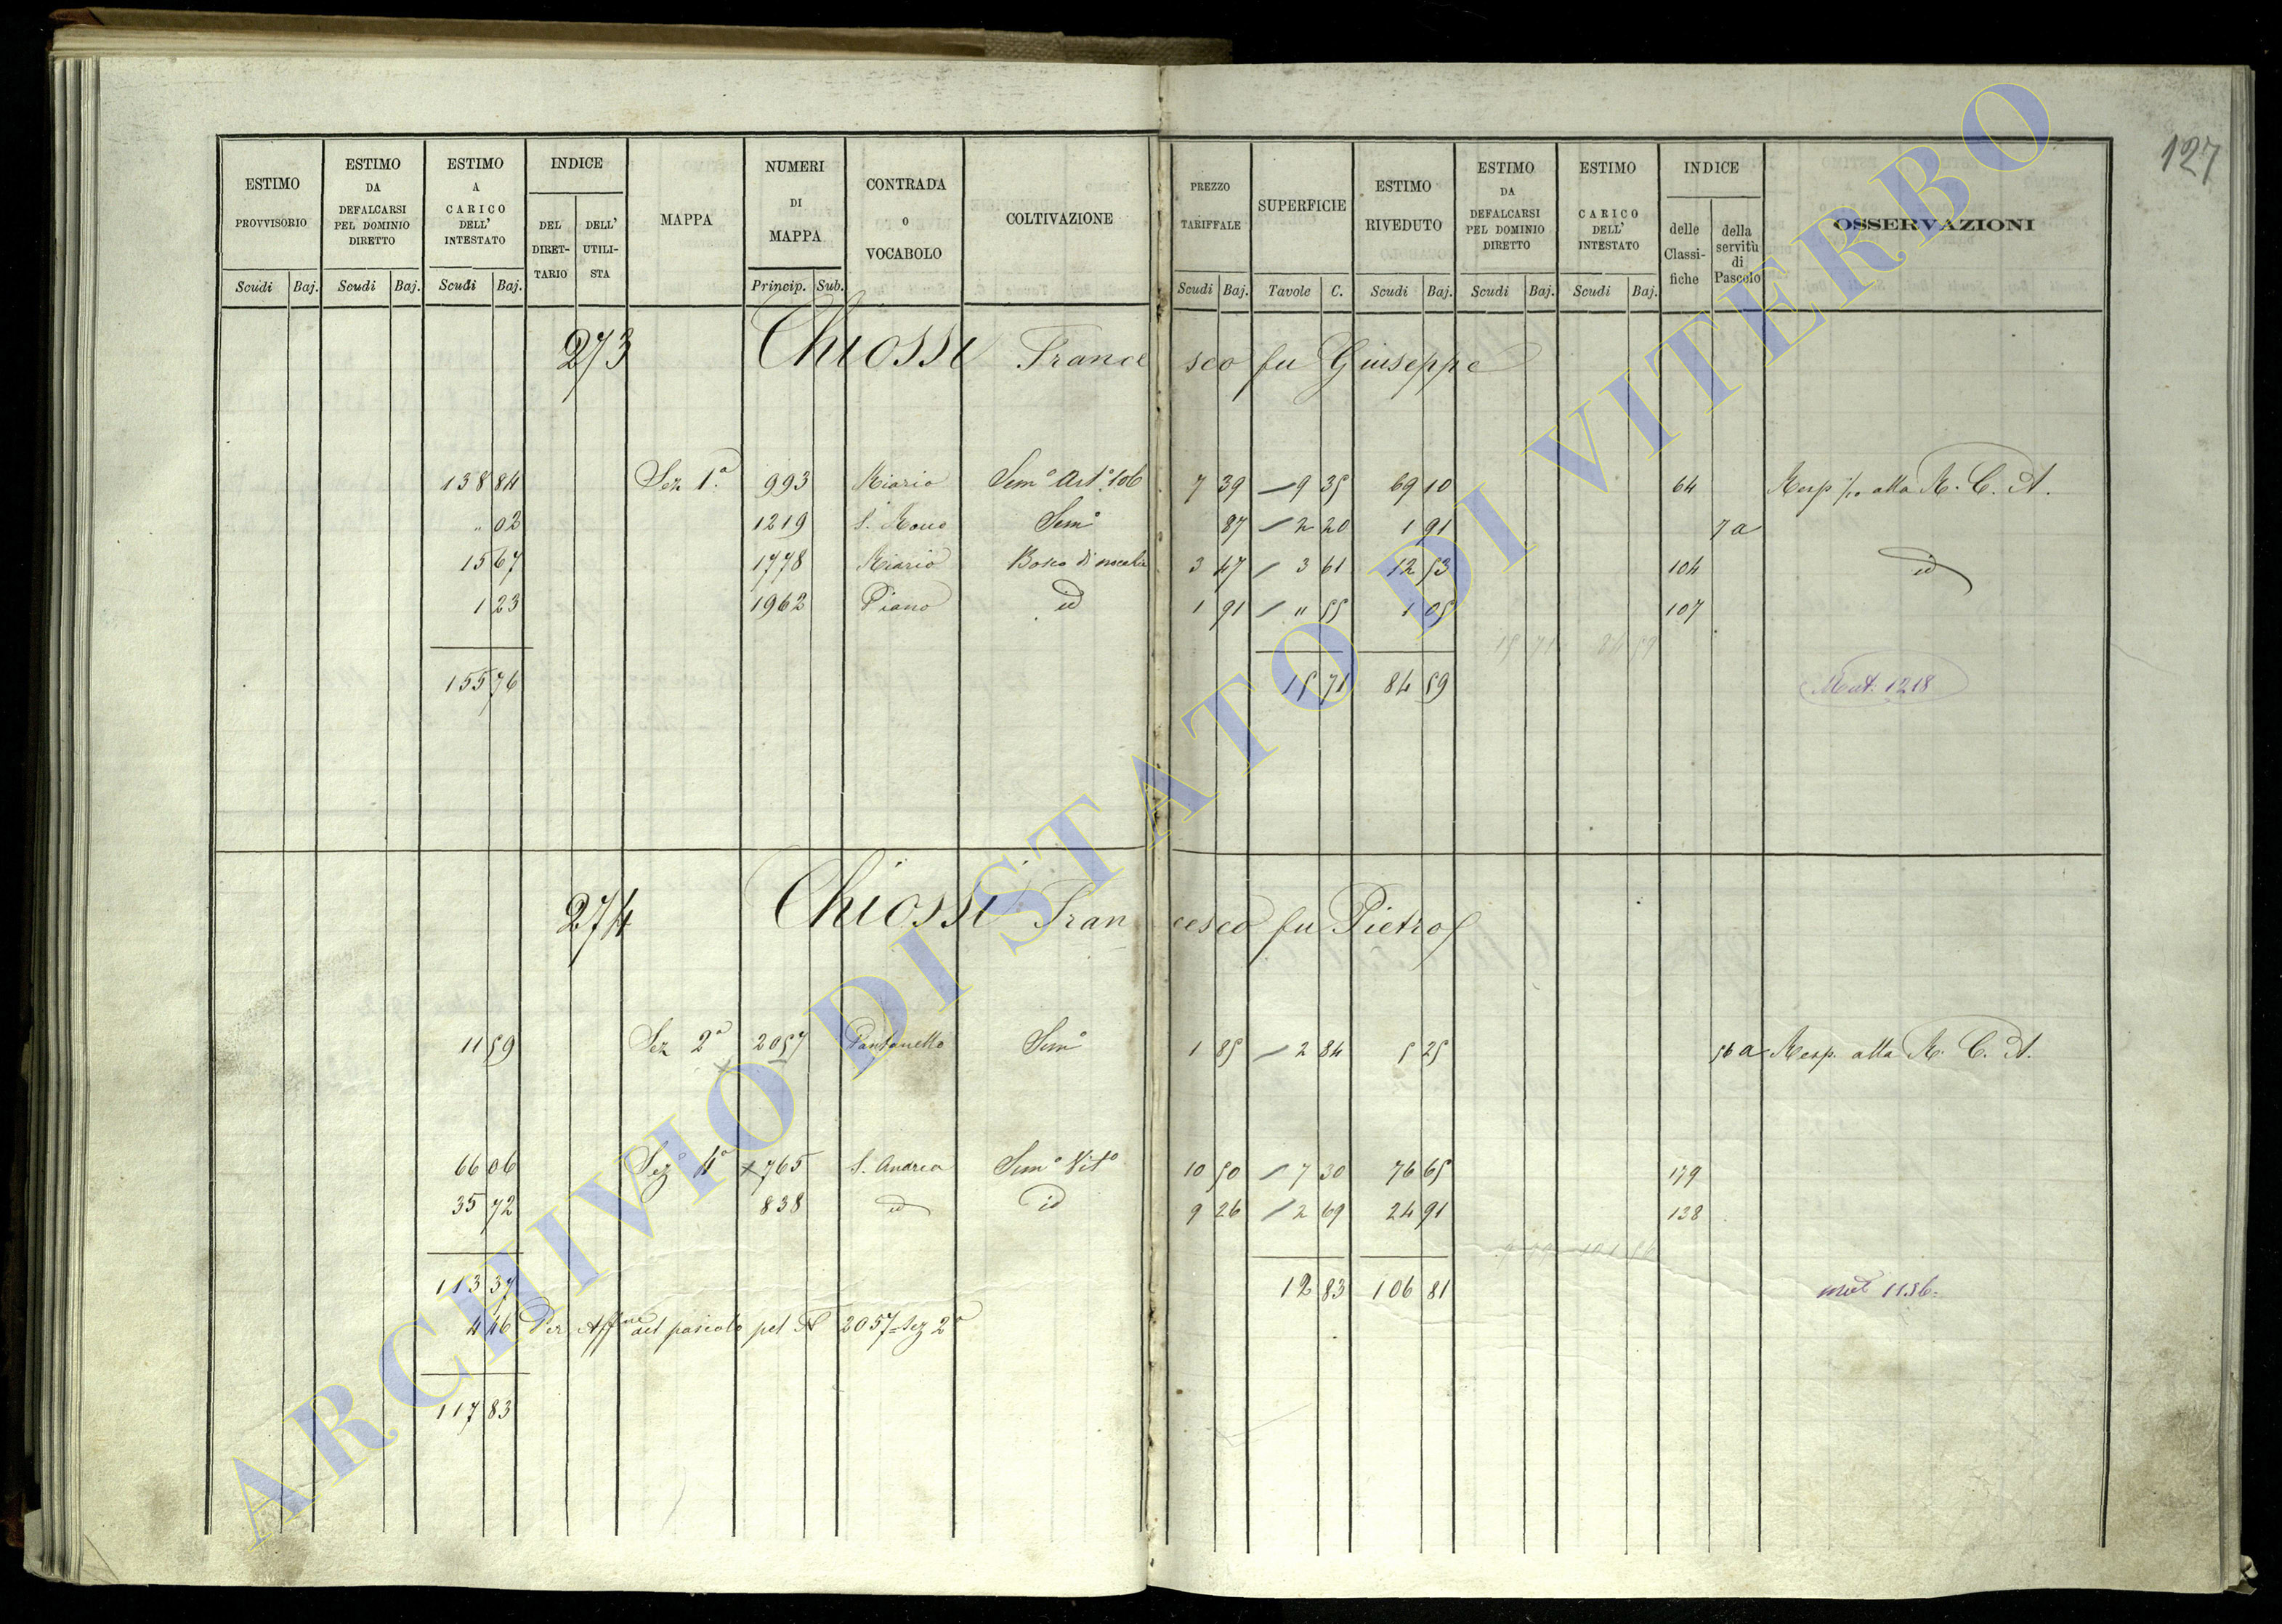 127
ESTIMO PROVVISORIO Scudi Baj. ESTIMO DA DEFALCARSI PEL DOMINIO DIRETTO Scudi Baj. ESTIMO A CARICO DELL' INTESTATO Scudi Baj. INDICE DEL DIRET-TARIO DELL' UTILI-STA MAPPA NUMERI DI MAPPA Princip. Sub. CONTRADA O VOCABOLO COLTIVAZIONE PREZZO TARIFFALE Scudi Baj. SUPERFICIE Tavole C. ESTIMO RIVEDUTO Scudi Baj. ESTIMO DA DEFALCARSI PEL DOMINIO DIRETTO Scudi Baj. ESTIMO A CARICO DELL' INTESTATO Scudi Baj. INDICE delle Classi-fiche della servitù di Pascolo OSSERVAZIONI
273 Chiossi Francesco fu Giuseppe
138 84 Sez 1ª 993 Riario Semº Artº 106 7 39 9 35 69 10 64 Resp alla R. C. A.
" 02 1219 S. Rocco Semº 87 2 20 1 91 7 a
15 67 1778 Riario Bosco di 3 47 3 61 12 53 104 id
1 23 1962 Piano id 1 91 " 55 1 05 107
15 71 84 59
155 76 15 71 84 59 Mut. 1218
274 Chiossi Francesco fu Pietro
11 59 Sez 2ª 2057 Pantanello Semº 1 85 2 84 5 25 56 a Resp. alla R. C. A.
66 06 Sezº 4ª 765 S. Andrea Semº Vitº 10 50 7 30 76 65 179
35 72 838 id id 9 26 2 69 24 91 138
113 37 12 83 106 81 mut 1156
4 46 Per Affne del pascolo pel N 2057 Sez 2ª
117 83
ARCHIVIO DI STATO DI VITERBO